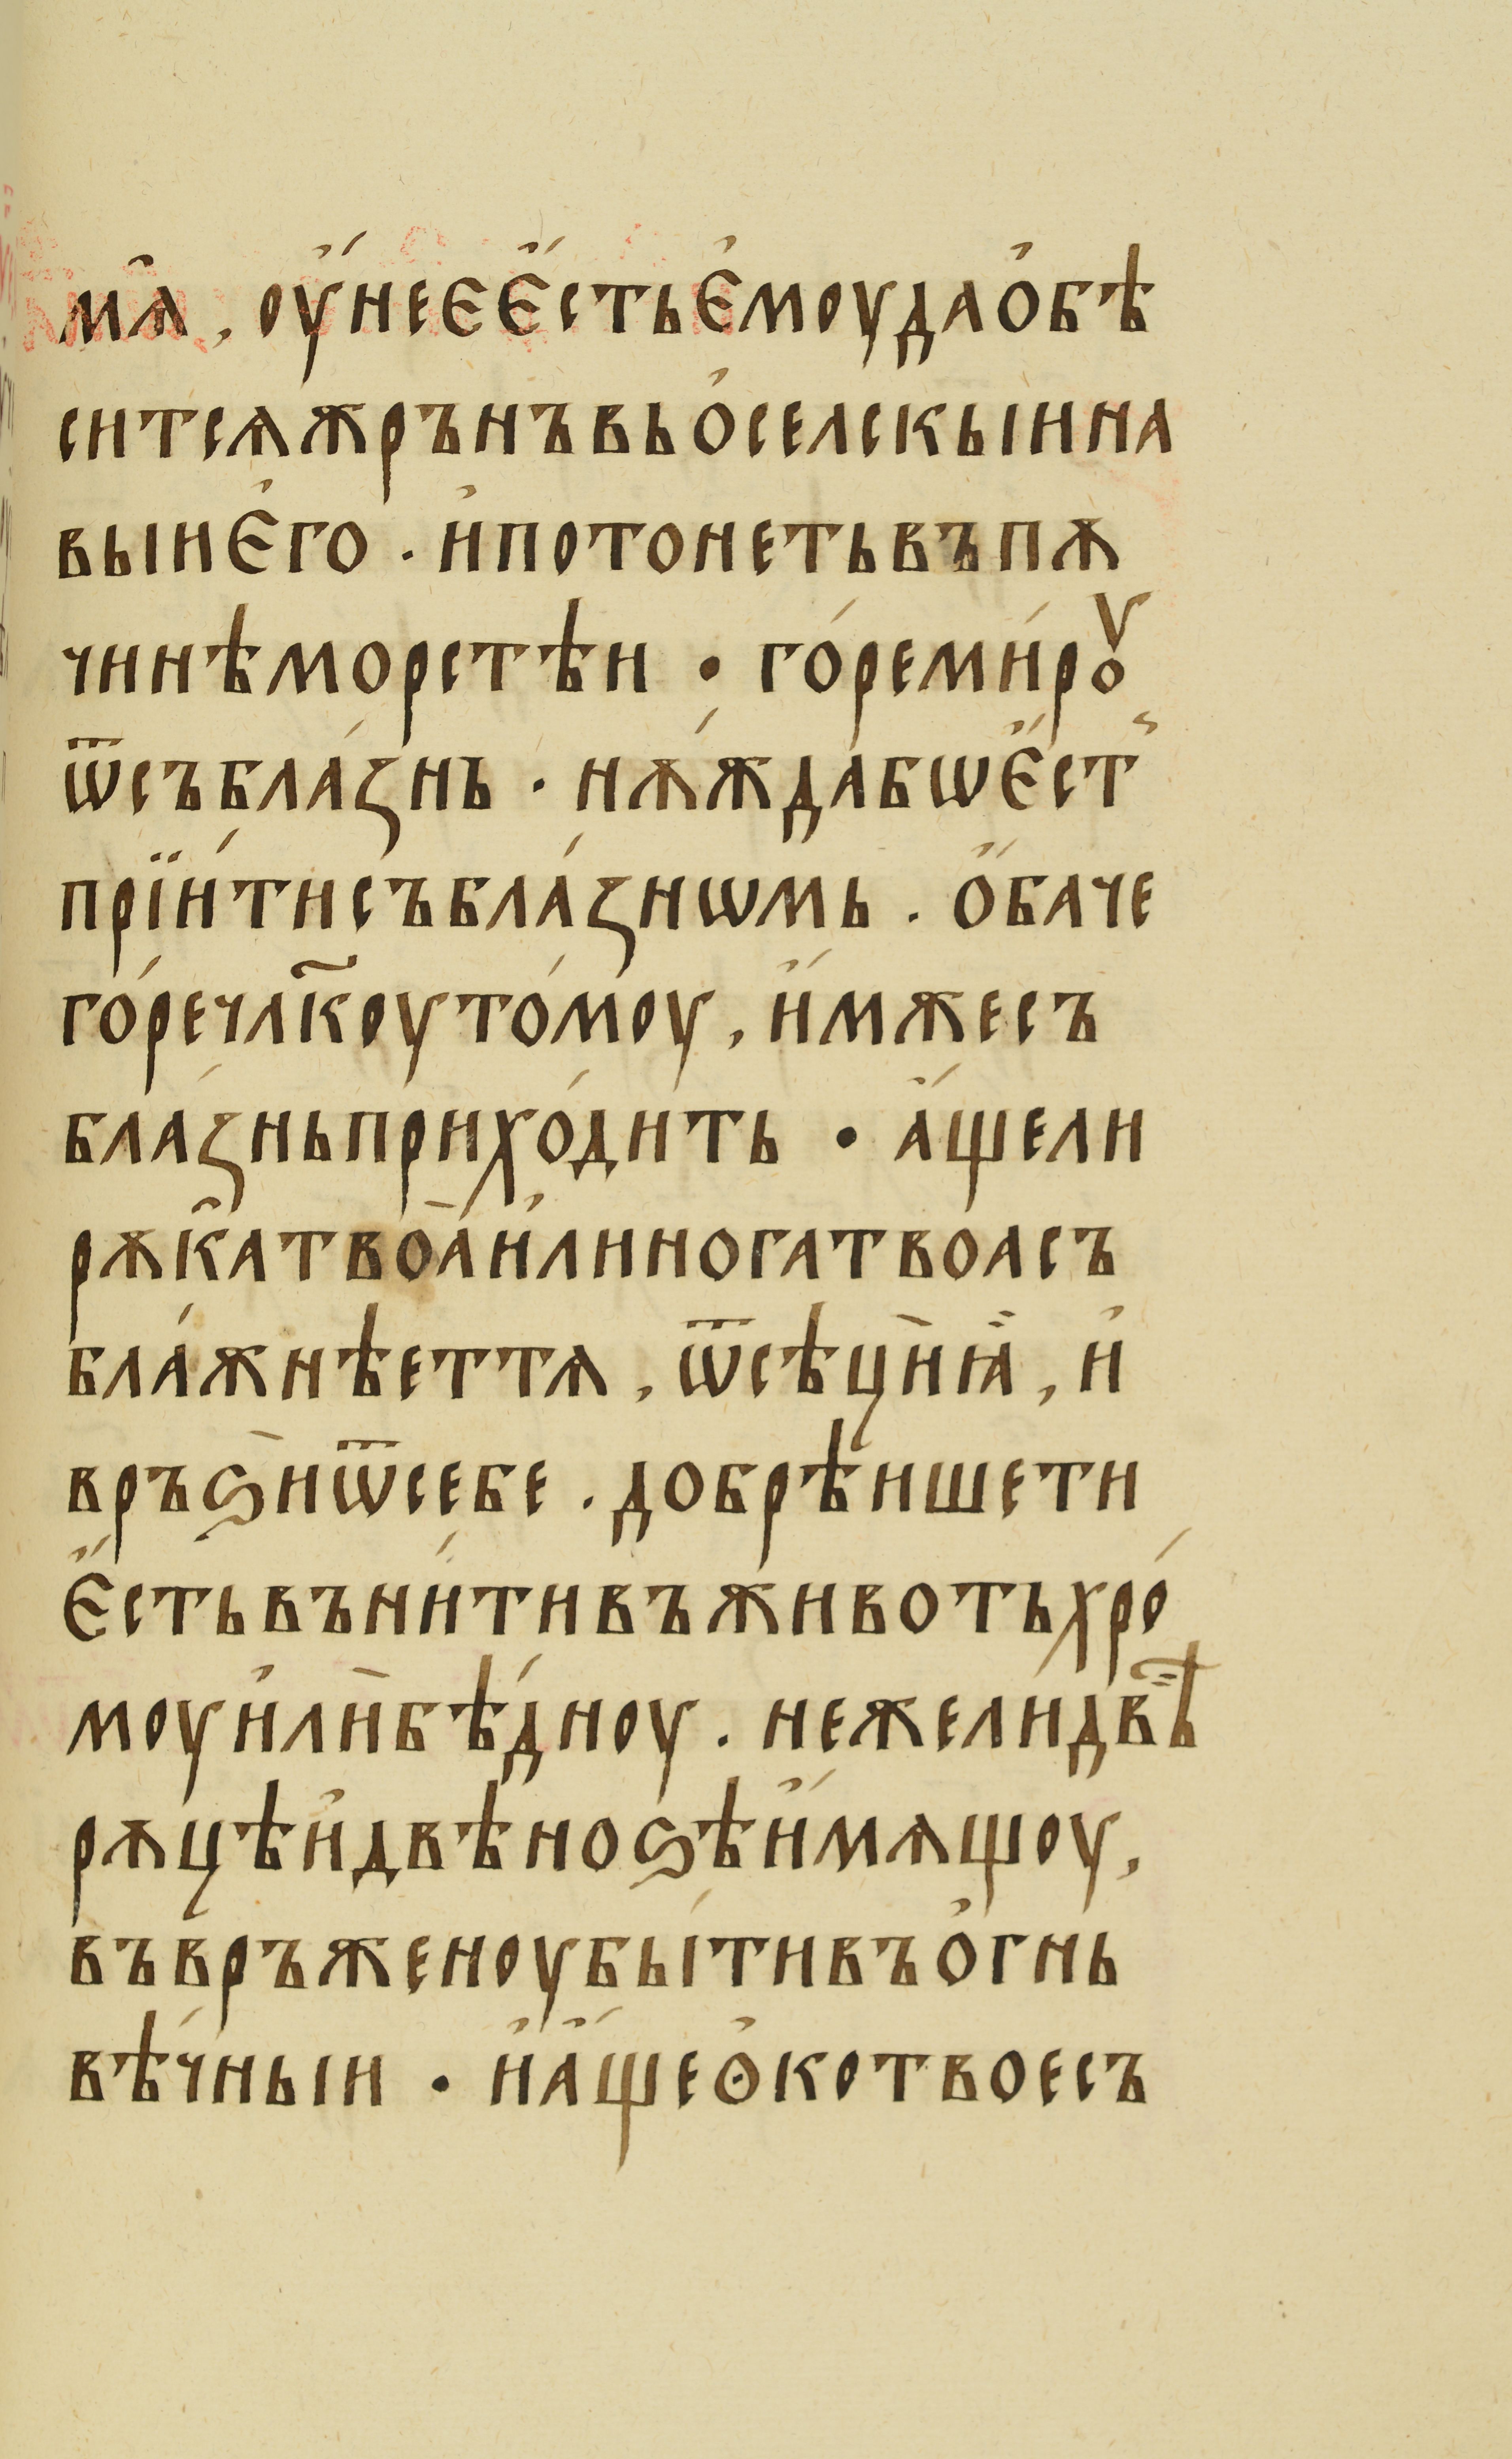 мѧ̑, оу҆́неє є҆́стьє҆моудао҆бѣ
ситсѧжрънъвьо҆селскыина
выиє҆го · и҆потонетьвъпѫ
чинѣморстѣи • го́реми́рꙋ
ѿсъбла́ꙁнь · нѫ́ждабѡє҆́ст
прїи́тисъбла́ꙁнѡмь . о҆́баче
го́речл҃коутомоу́, и҆́мжесъ
бла́ꙁньприхо́дить • а҆́щели
рѫ̑катвоа̀и҆линогатвоасъ
бла́жнѣеттѧ, ѿсѣцѝꙗ҆̀, и҆
връѕѝѿсебе . добрѣишети
є҆́стьвъни́тивъживотьхро́
моуи҆лѝбѣ́дноу . нежелидвѣ̑
рѫцѣи҆двѣноѕѣи҆́мѧщоу,
въврьженоубы́тивъо҆гнь
вѣ́чныи • и҆а҆́щеꙩ҆котвоесъ